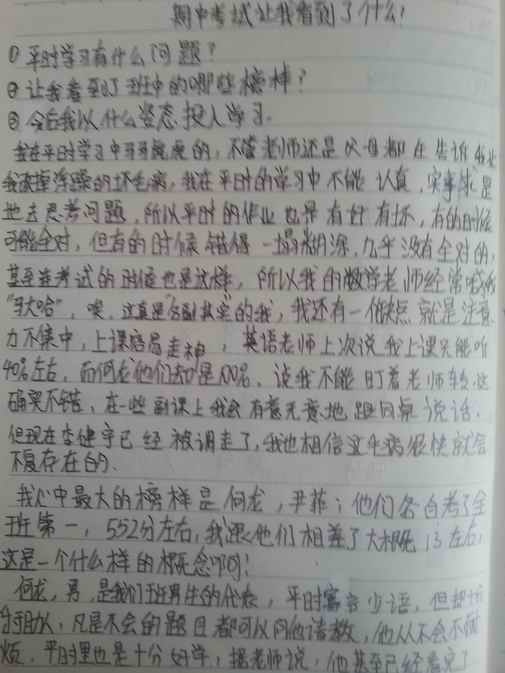 期中考试让我看到了什么!
① 平时学习有什么问题?
② 让我看到了班中的哪些榜样?
③ 今后我以什么姿态投入学习.
我在平时学习中 的,不管老师还是父母都在告诉我
我 浮躁的坏毛病,我在平时的学习中不能认真,实事求是
地去思考问题,所以平时的作业也是有好有坏,有的时候
可能全对,但有的时候错得一塌糊涂,几乎没有全对的,
甚至连考试的时候也是这样,所以我的数学老师经常
"马大哈",唉,这真是名副其实的我,我还有一个缺点就是注意
力不集中,上课容易走神,英语老师上次说我上课只能听
40%左右,而何龙他们却是100%,说我不能盯着老师转,这
确实不错,在一些副课上我会有意无意地跟同桌说话,
但现在李健宇已经被调走了,我也相信这个毛病很快就会
不复存在的.
我心中最大的榜样是何龙,尹菲;他们各自考了全
班第一,552分左右,我跟他们相差了大概 左右,
这是一个什么样的概念啊!
何龙,男,是我们班男生的代表,平时寡言少语,但
助人,凡是不会的题目都可以向他请教,他从不会不耐
烦,平时里也是十分好学,据老师说,他甚至已经看完了